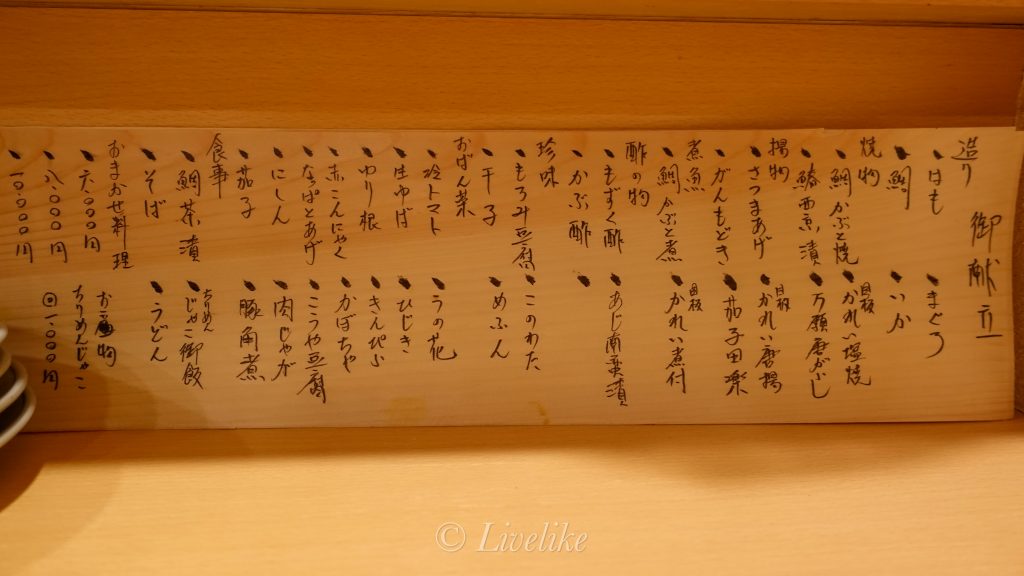 御献立
造り
・はも ・まぐろ
・鯛 ・いか
焼物
・鯛かぶと焼 ・目板かれい塩焼
・鰆西京漬 ・万願唐がらし
揚物
・さつまあげ ・目板かれい唐揚
・がんもどき ・茄子田楽
煮魚
・鯛かぶと煮 ・目板かれい煮付
酢の物
・もずく酢 ・あじ南蛮漬
・かぶ酢 ・
珍味
・もろみ豆腐 ・このわた
・干子 ・めふん
おばん菜
・冷トマト ・うの花
・生ゆば ・ひじき
・ゆり根 ・きんぴら
・赤こんにゃく ・かぼちゃ
・なっぱとあげ ・こうや豆腐
・にしん ・肉じゃが
・茄子 ・豚角煮
食事
・鯛茶漬 ・ちりめんじゃこ御飯
・そば ・うどん
おまかせ料理
・六.000円
・八.000円
・一0.000円
お土産物
ちりめんじゃこ
一.000円
© Livelike